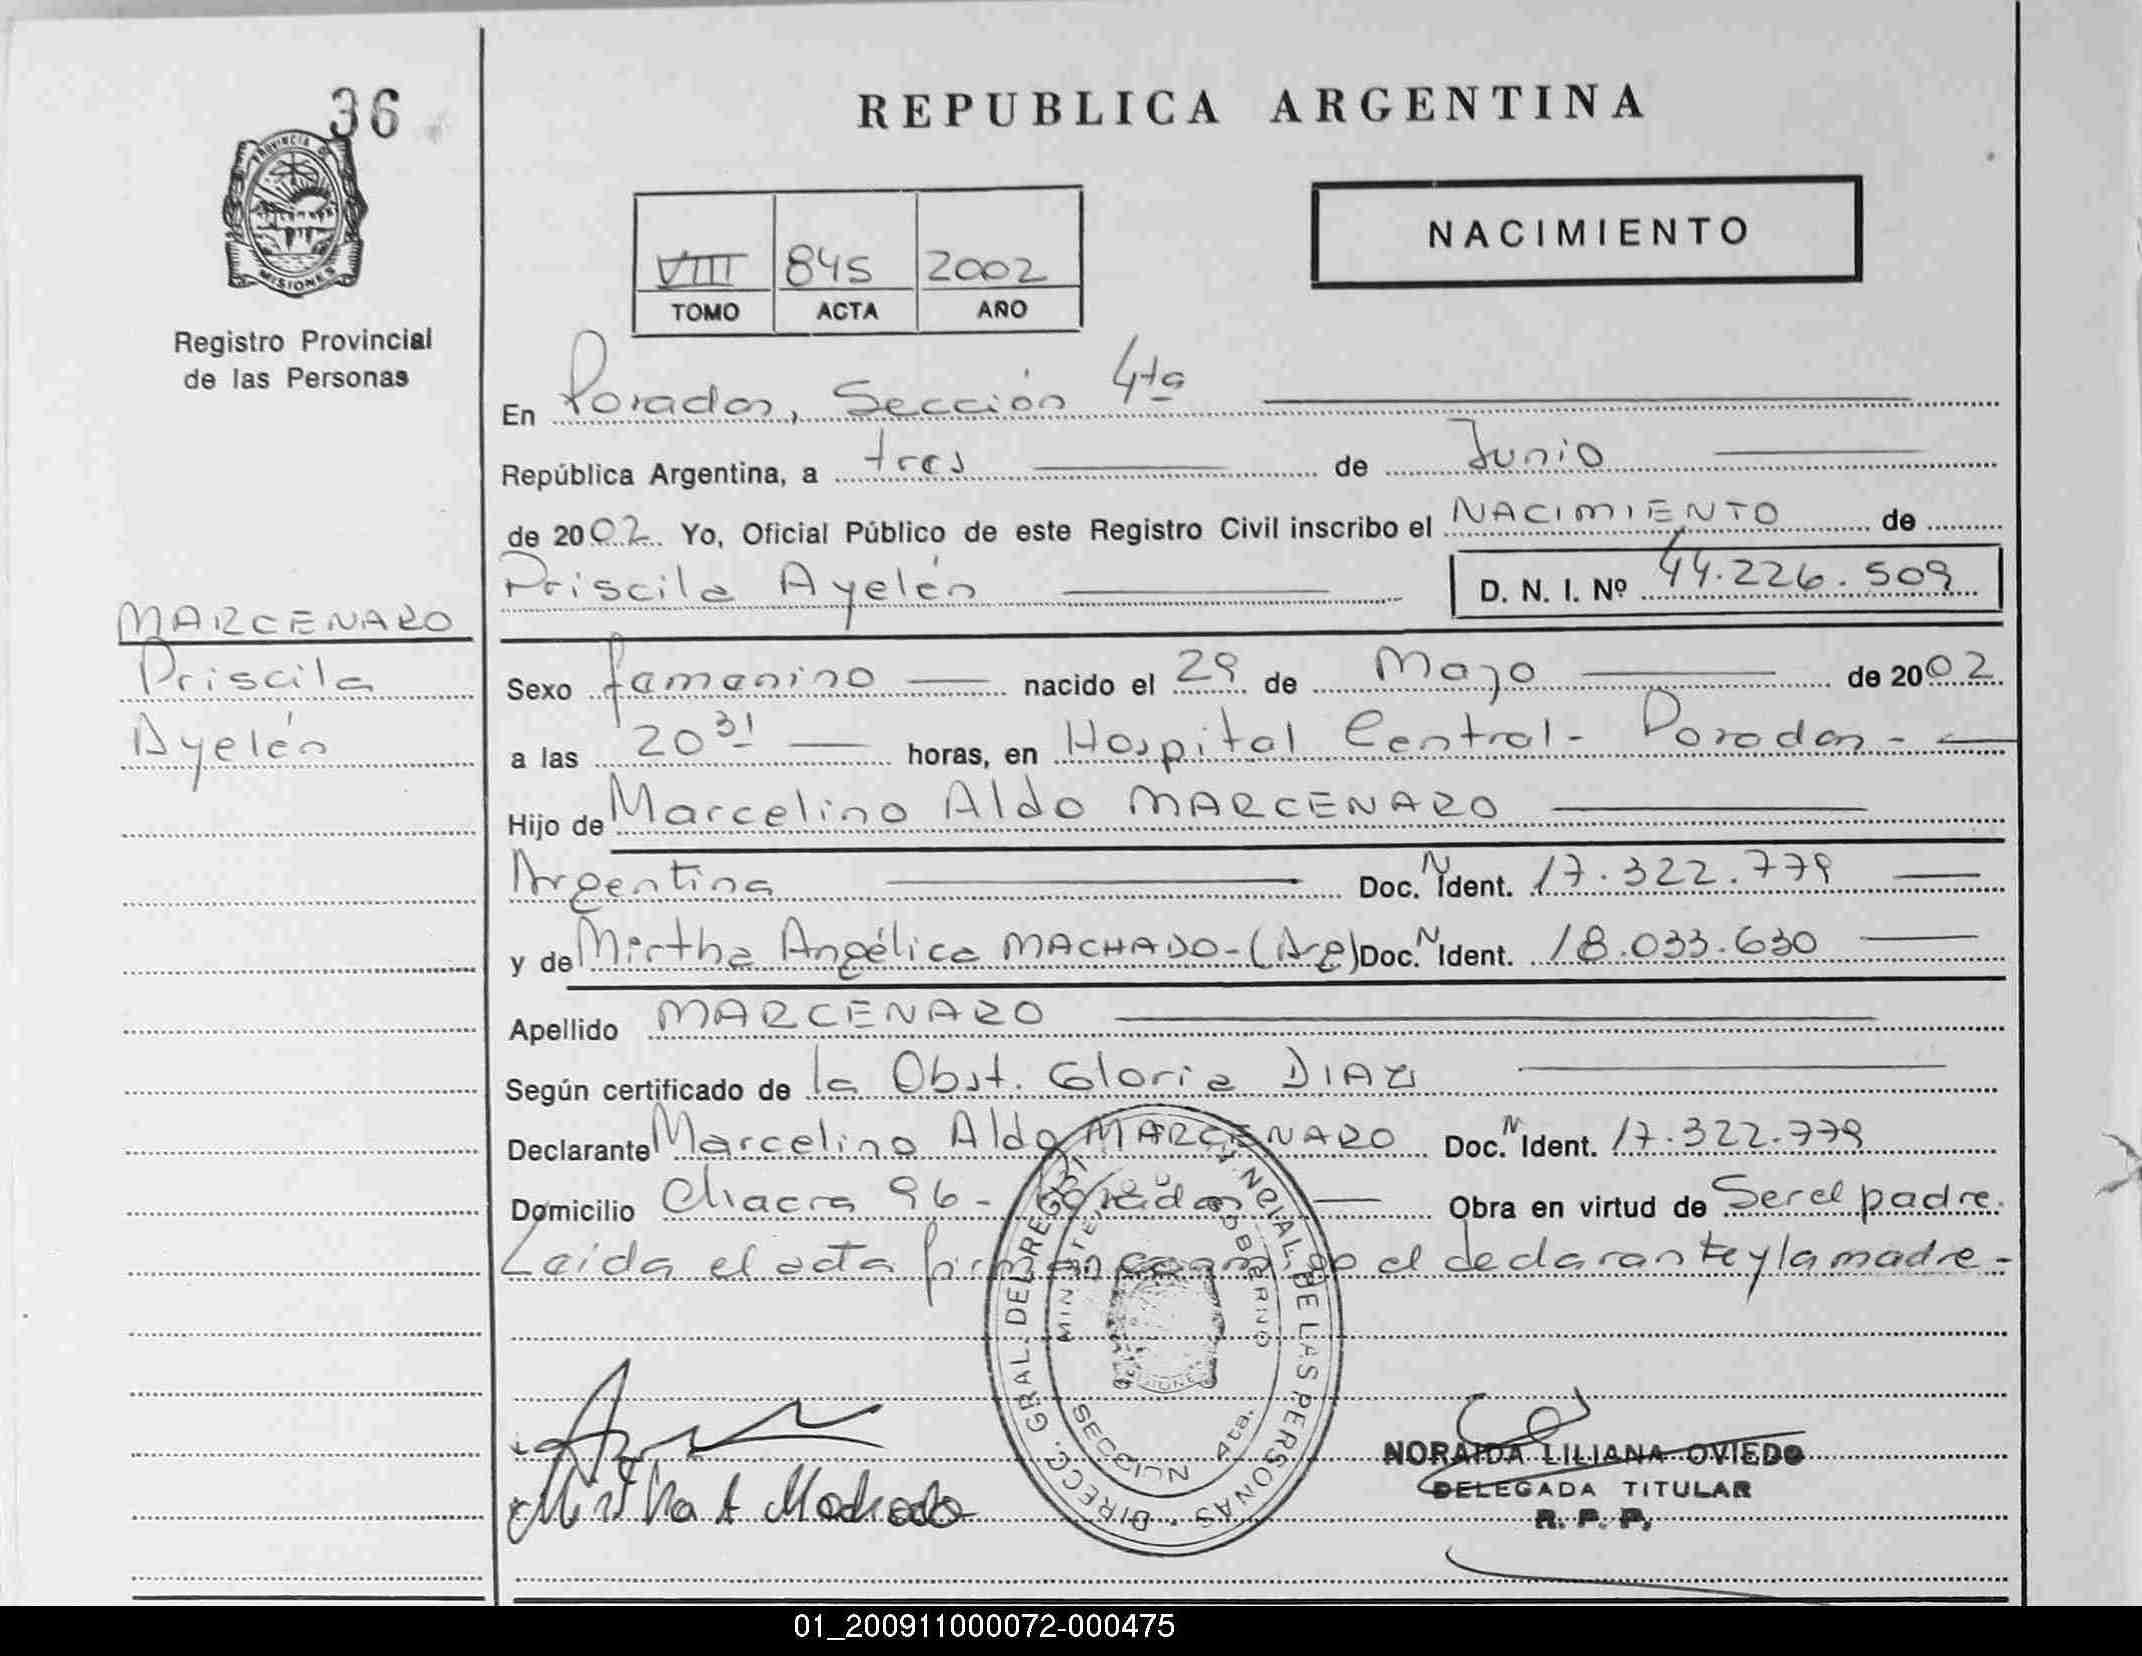 36
REPUBLICA ARGENTINA
PROVINCIA DE
MISIONES
Registro Provincial
de las Personas
NACIMIENTO
VIII 845 2002
TOMO ACTA AÑO
En Posadas, Sección 4ta
República Argentina, a tres de Junio
de 2002 Yo, Oficial Público de este Registro Civil inscribo el NACIMIENTO de
Priscila Ayelén D. N. I. Nº 44.226.509
MARCENARO
Priscila
Ayelén
Sexo femenino nacido el 29 de Mayo de 2002
a las 20 31 horas, en Hospital Central - Posadas -
Hijo de Marcelino Aldo MARCENARO
Argentina Doc. N Ident. 17.322.779
y de Mirtha Angélica MACHADO - (Arg) Doc. N Ident. 18.033.630
Apellido MARCENARO
Según certificado de la Obst. Gloria DIAZ
Declarante Marcelino Aldo MARCENARO Doc. N Ident. 17.322.779
Domicilio Chacra 96 - Posadas Obra en virtud de Ser el padre.
Leida el acta firman conmigo el declarante y la madre -
DIRECC. GRAL. DEL REGISTRO PROVINCIAL DE LAS PERSONAS
MINISTERIO DE GOBIERNO
SECCION 4ta.
Mirtha A Machado
NORAIDA LILIANA OVIEDO
DELEGADA TITULAR
R. P. P.
01_200911000072-000475